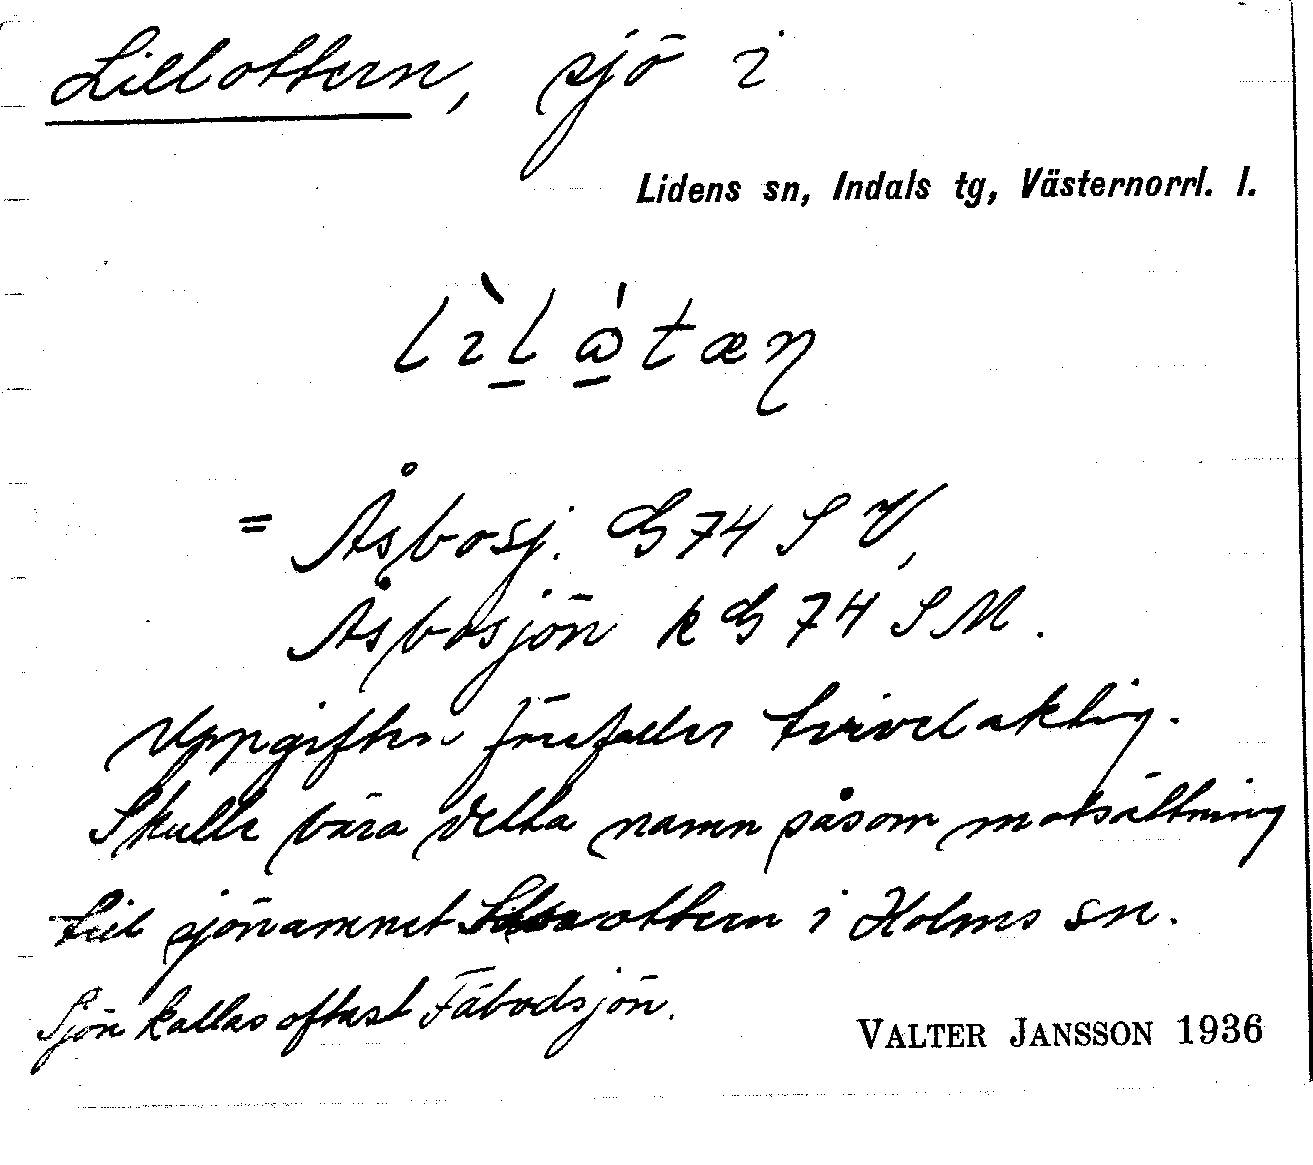 Lillottern, sjö i
Lidens sn, Indals tg, Västernorrl. l.
lìlátæn
= Åsbosj. G 74 S V,
Åsbosjön k G 74 S M.
Uppgiften förefaller tvivelaktig.
Skulle vara detta namn såsom motsättning
till sjönamnet ottern i Holms sn.
Sjön kallas oftast Fäbodsjön.
VALTER JANSSON 1936